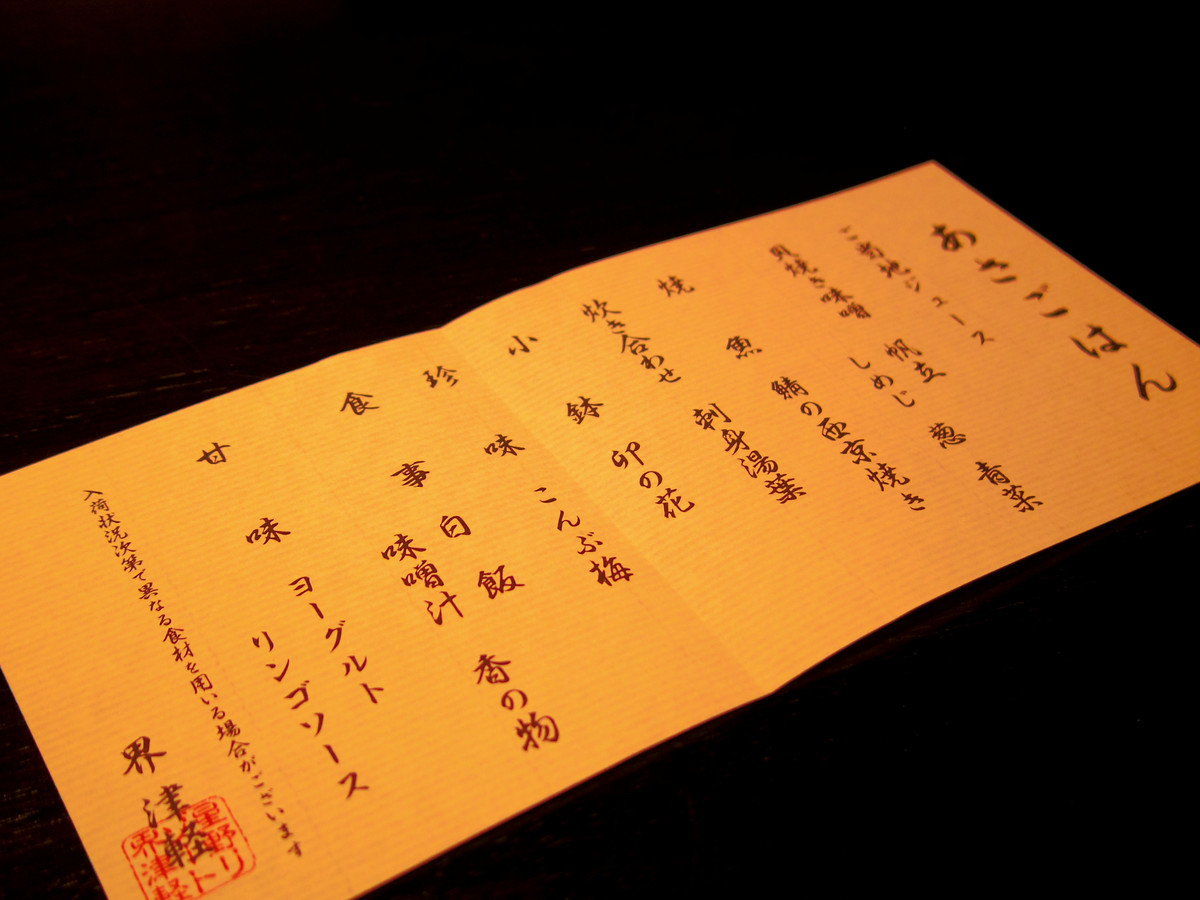 あさごはん
ご当地ジュース
貝焼き味噌 帆立 葱 青菜
しめじ
焼 魚 鯖の西京焼き
炊き合わせ 刺身湯葉
小 鉢 卯の花
珍 味 こんぶ梅
食 事 白飯 香の物
味噌汁
甘 味 ヨーグルト
リンゴソース
入荷状況次第で異なる食材を用いる場合がございます
界 津軽
星野リ
ト
界津軽